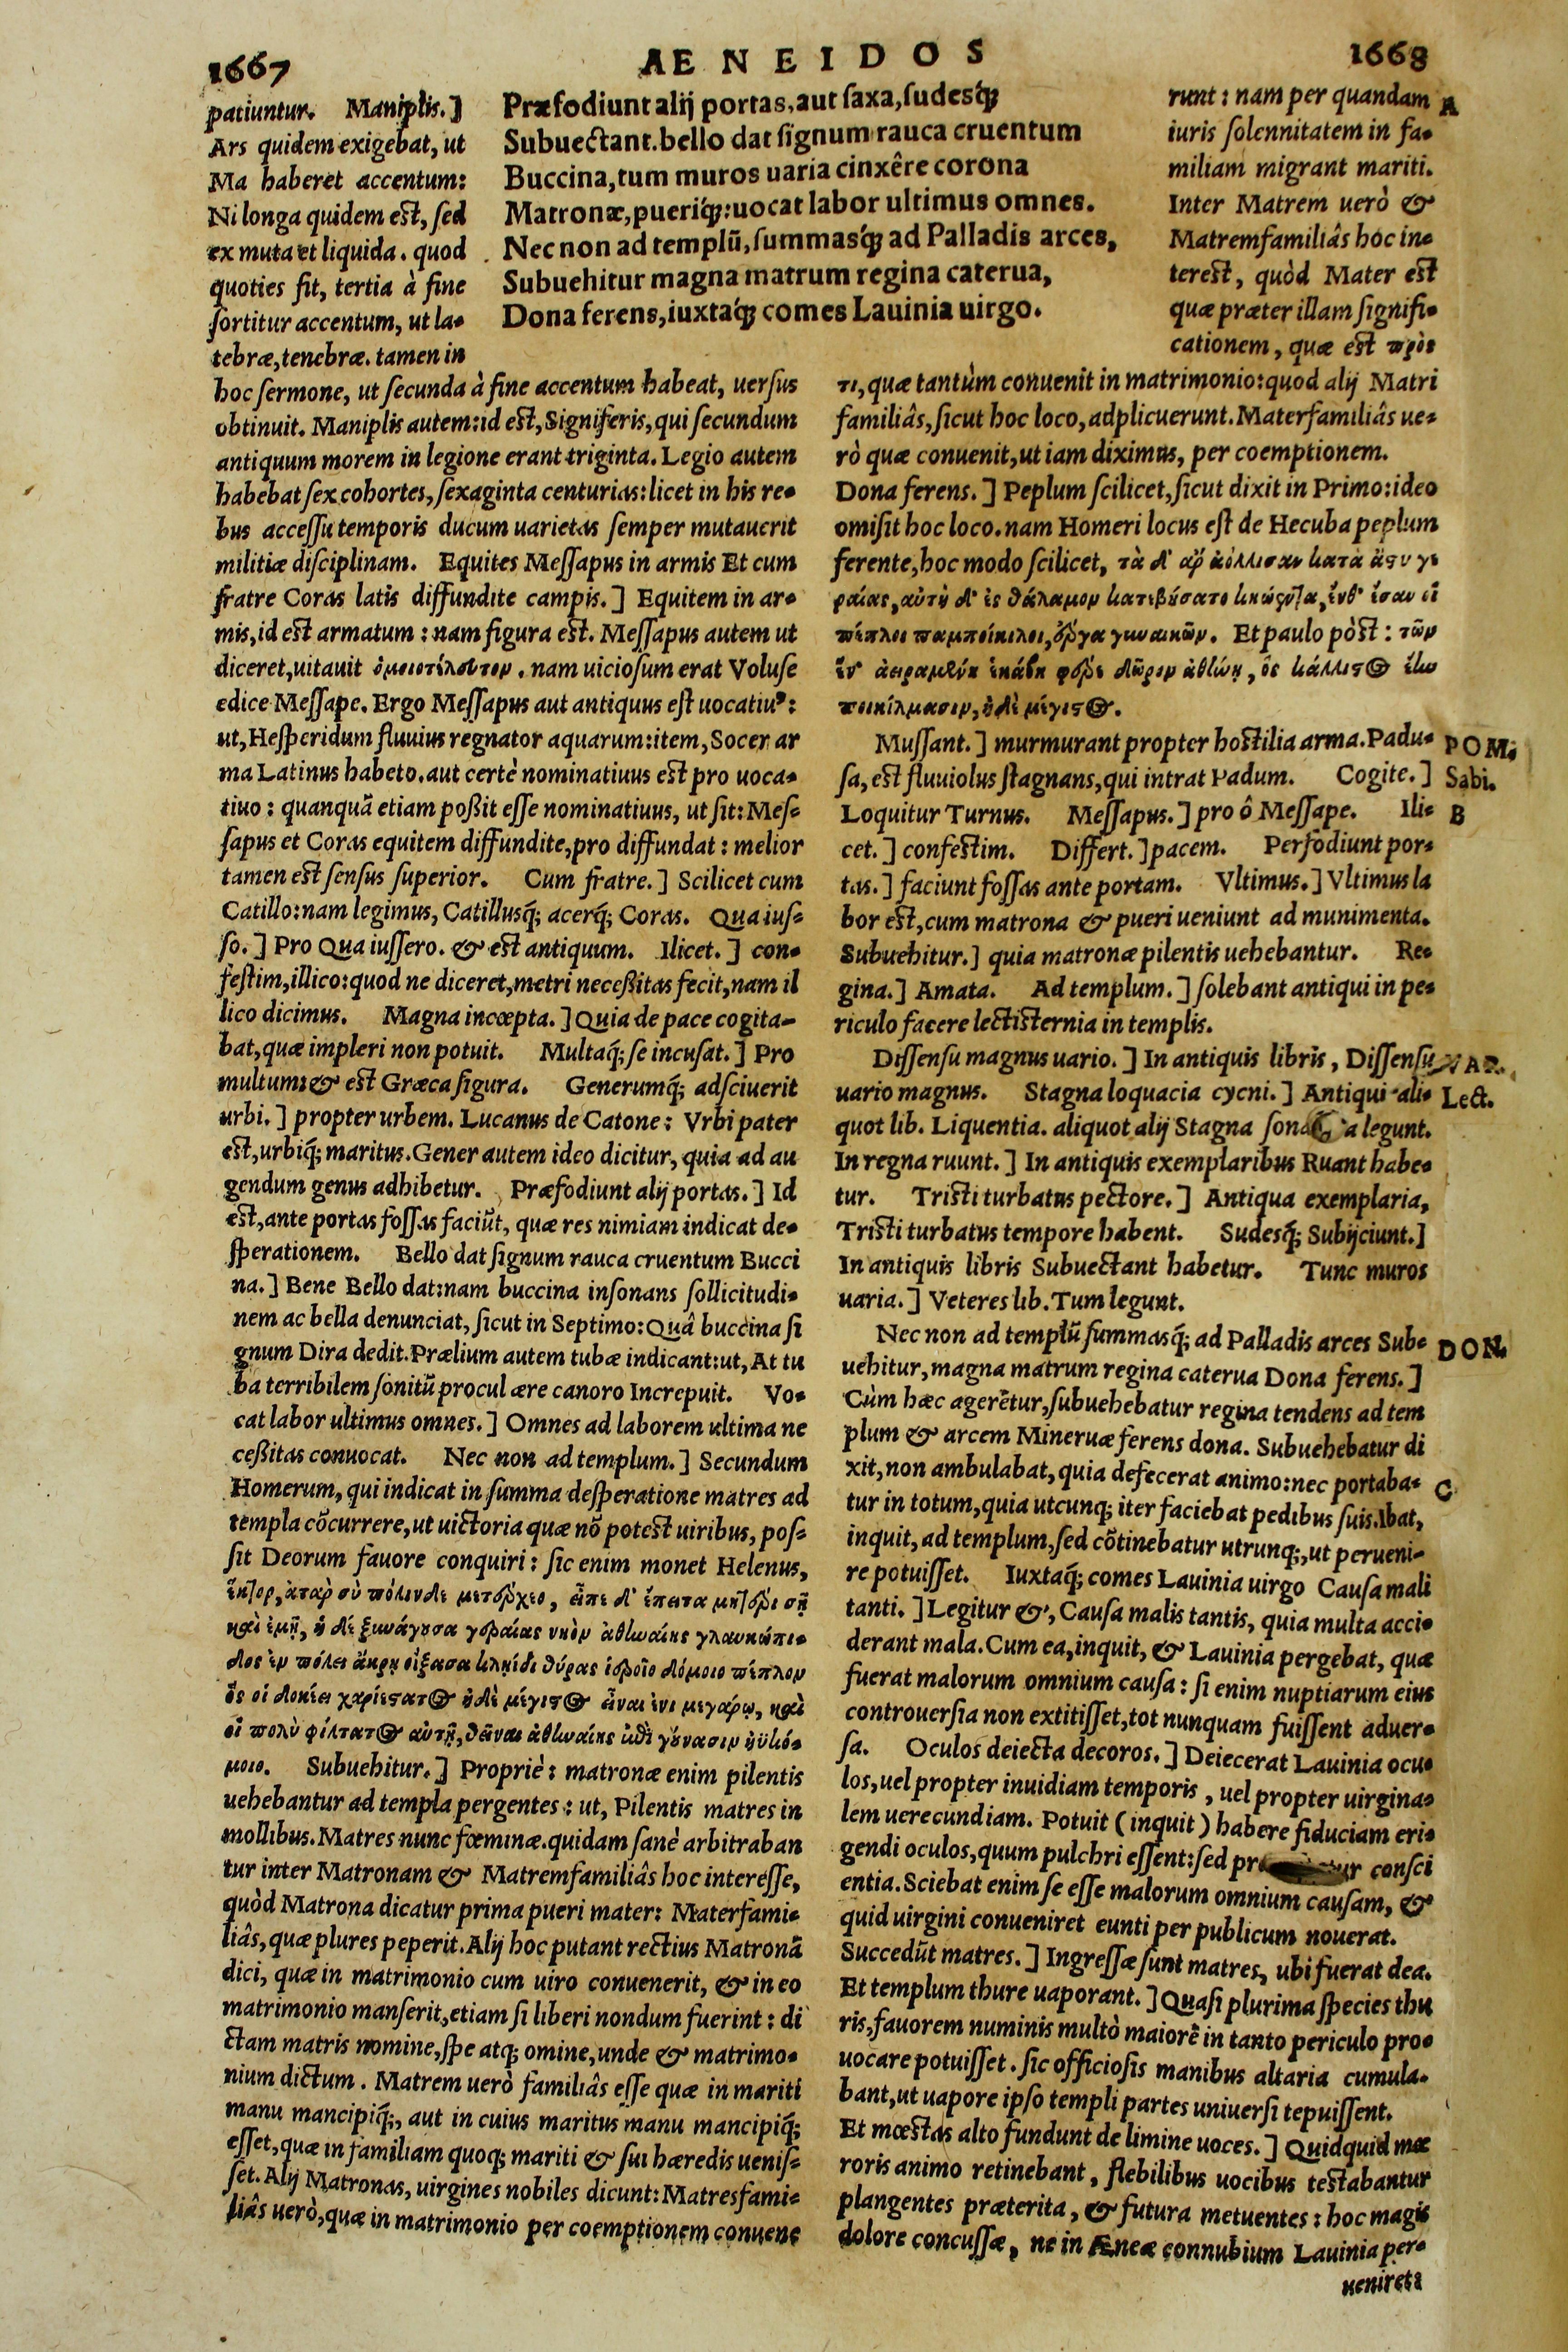 1667
AENEIDOS
1668
patiuntur. Maniplis.]
Ars quidem exigebat, ut
Ma haberet accentum:
Ni longa quidem est, sed
ex muta et liquida. quod
quoties fit, tertia à fine
sortitur accentum, ut la-
tebræ, tenebræ. tamen in
Præfodiunt alij portas, aut saxa, sudesq́;
Subuectant. bello dat signum rauca cruentum
Buccina, tum muros uaria cinxêre corona
Matronæ, pueriq́;: uocat labor ultimus omnes.
Nec non ad templũ, summasq́; ad Palladis arces,
Subuehitur magna matrum regina caterua,
Dona ferens, iuxtaq́; comes Lauinia uirgo.
hoc sermone, ut secunda à fine accentum habeat, uersus
obtinuit. Maniplis autem: id est, Signiferis, qui secundum
antiquum morem in legione erant triginta. Legio autem
habebat sex cohortes, sexaginta centurias: licet in his re-
bus accessu temporis ducum uarietas semper mutauerit
militiæ disciplinam. Equites Messapus in armis Et cum
fratre Coras latis diffundite campis.] Equitem in ar-
mis, id est armatum: nam figura est. Messapus autem ut
diceret, uitauit ὁμοιοτέλευτον. nam uiciosum erat Voluse
edice Messape. Ergo Messapus aut antiquus est uocatiuꝰ:
ut, Hesperidum fluuius regnator aquarum: item, Socer ar
ma Latinus habeto. aut certè nominatiuus est pro uoca-
tiuo: quanquã etiam poßit esse nominatiuus, ut sit: Mes-
sapus et Coras equitem diffundite, pro diffundat: melior
tamen est sensus superior. Cum fratre.] Scilicet cum
Catillo: nam legimus, Catillusq́; acerq́; Coras. Qua ius-
so.] Pro Qua iussero. & est antiquum. Ilicet.] con-
festim, illico: quod ne diceret, metri neceßitas fecit, nam il
lico dicimus. Magna incœpta.] Quia de pace cogita-
bat, quæ impleri non potuit. Multaq́; se incusat.] Pro
multum: & est Græca figura. Generumq́; adsciuerit
urbi.] propter urbem. Lucanus de Catone: Vrbi pater
est, urbiq́; maritus. Gener autem ideo dicitur, quia ad au
gendum genus adhibetur. Præfodiunt alij portas.] Id
est, ante portas fossas faciũt, quæ res nimiam indicat de-
sperationem. Bello dat signum rauca cruentum Bucci
na.] Bene Bello dat: nam buccina insonans sollicitudi-
nem ac bella denunciat, sicut in Septimo: Quâ buccina si
gnum Dira dedit. Prælium autem tubæ indicant: ut, At tu
ba terribilem sonitũ procul ære canoro Increpuit. Vo-
cat labor ultimus omnes.] Omnes ad laborem ultima ne
ceßitas conuocat. Nec non ad templum.] Secundum
Homerum, qui indicat in summa desperatione matres ad
templa cõcurrere, ut uictoria quæ nõ potest uiribus, pos-
sit Deorum fauore conquiri: sic enim monet Helenus,
ἕκτορ, ἀτὰρ σὺ πόλινδε μετέρχεο, εἶπε δ' ἔπειτα μητέρι σῇ
καὶ ἐμῇ, ἡ δὲ ξυνάγουσα γεραίας νηὸν ἀθηναίης γλαυκώπι-
δος ἐν πόλει ἄκρῃ οἴξασα κληῖδι θύρας ἱεροῖο δόμοιο πέπλον
ὅς οἱ δοκέει χαριέστατος ἠδὲ μέγιστος εἶναι ἐνι μεγάρῳ, καὶ
οἱ πολὺ φίλτατος αὐτῇ, θεῖναι ἀθηναίης ἐπὶ γούνασιν ἠϋκό-
μοιο. Subuehitur.] Propriè: matronæ enim pilentis
uehebantur ad templa pergentes: ut, Pilentis matres in
mollibus. Matres nunc fœminæ. quidam sanè arbitraban
tur inter Matronam & Matremfamiliâs hoc interesse,
quòd Matrona dicatur prima pueri mater: Materfami-
liâs, quæ plures peperit. Alij hoc putant rectius Matronã
dici, quæ in matrimonio cum uiro conuenerit, & in eo
matrimonio manserit, etiam si liberi nondum fuerint: di
ctam matris nomine, spe atq; omine, unde & matrimo-
nium dictum. Matrem uerò familiâs esse quæ in mariti
manu mancipiq́;, aut in cuius maritus manu mancipiq́;
esset, quæ in familiam quoq; mariti & sui hæredis uenis-
set. Alij Matronas, uirgines nobiles dicunt: Matresfami-
liâs uerò, quæ in matrimonio per coemptionem conuene
runt: nam per quandam
iuris solennitatem in fa-
miliam migrant mariti.
Inter Matrem uerò &
Matremfamiliâs hoc in-
terest, quòd Mater est
quæ præter illam signifi-
cationem, quæ est πρὸς
A
τι, quæ tantùm conuenit in matrimonio: quod alij Matri
familiâs, sicut hoc loco, adplicuerunt. Materfamiliâs ue-
rò quæ conuenit, ut iam diximus, per coemptionem.
Dona ferens.] Peplum scilicet, sicut dixit in Primo: ideo
omisit hoc loco. nam Homeri locus est de Hecuba peplum
ferente, hoc modo scilicet, τὰ δ' ἂρ ἀόλλισαν κατὰ ἄστυ γε
ραίας, αὐτὴ δ' ἐς θάλαμον κατεβήσατο κηώεντα, ἔνθ' ἔσαν οἱ
πέπλοι παμποίκιλοι, ἔργα γυναικῶν. Et paulo pòst: τῶν
ἕν' ἀειραμένη ἑκάβη φέρε δῶρον ἀθήνῃ, ὃς κάλλιστος ἔην
ποικίλμασιν, ἠδὲ μέγιστος.
Mussant.] murmurant propter hostilia arma. Padu-
sa, est fluuiolus stagnans, qui intrat Padum. Cogite.]
Loquitur Turnus. Messapus.] pro ô Messape. Ili-
cet.] confestim. Differt.] pacem. Perfodiunt por-
tas.] faciunt fossas ante portam. Vltimus.] Vltimus la
bor est, cum matrona & pueri ueniunt ad munimenta.
Subuehitur.] quia matronæ pilentis uehebantur. Re-
gina.] Amata. Ad templum.] solebant antiqui in pe-
riculo facere lectisternia in templis.
POM.
Sabi.
B
Dissensu magnus uario.] In antiquis libris, Dissensu
uario magnus. Stagna loquacia cycni.] Antiqui ali-
quot lib. Liquentia. aliquot alij Stagna legunt.
In regna ruunt.] In antiquis exemplaribus Ruant habe-
tur. Tristi turbatus pectore.] Antiqua exemplaria,
Tristi turbatus tempore habent. Sudesq́; Subijciunt.]
In antiquis libris Subuectant habetur. Tunc muros
uaria.] Veteres lib. Tum legunt.
VAR.
Lect.
Nec non ad templũ summasq́; ad Palladis arces Sub-
uehitur, magna matrum regina caterua Dona ferens.]
Cùm hæc agerẽtur, subuehebatur regina tendens ad tem
plum & arcem Mineruæ ferens dona. Subuehebatur di
xit, non ambulabat, quia defecerat animo: nec portaba-
tur in totum, quia utcunq; iter faciebat pedibus suis. Ibat,
inquit, ad templum, sed cõtinebatur utrunq;, ut perueni-
re potuisset. Iuxtaq́; comes Lauinia uirgo Causa mali
tanti.] Legitur &, Causa malis tantis, quia multa acci-
derant mala. Cum ea, inquit, & Lauinia pergebat, quæ
fuerat malorum omnium causa: si enim nuptiarum eius
controuersia non extitisset, tot nunquam fuissent aduer-
sa. Oculos deiecta decoros.] Deiecerat Lauinia ocu-
los, uel propter inuidiam temporis, uel propter uirgina-
lem uerecundiam. Potuit (inquit) habere fiduciam eri-
gendi oculos, quum pulchri essent: sed consci
entia. Sciebat enim se esse malorum omnium causam, &
quid uirgini conueniret eunti per publicum nouerat.
Succedũt matres.] Ingressæ sunt matres, ubi fuerat dea.
Et templum thure uaporant.] Quasi plurima species thu
ris, fauorem numinis multò maiorẽ in tanto periculo pro-
uocare potuisset. sic officiosis manibus altaria cumula-
bant, ut uapore ipso templi partes uniuersi tepuissent.
Et mœstas alto fundunt de limine uoces.] Quidquid mœ
roris animo retinebant, flebilibus uocibus testabantur
plangentes præterita, & futura metuentes: hoc magis
dolore concussæ, ne in Æneæ connubium Lauinia per-
ueniret:
DON.
C